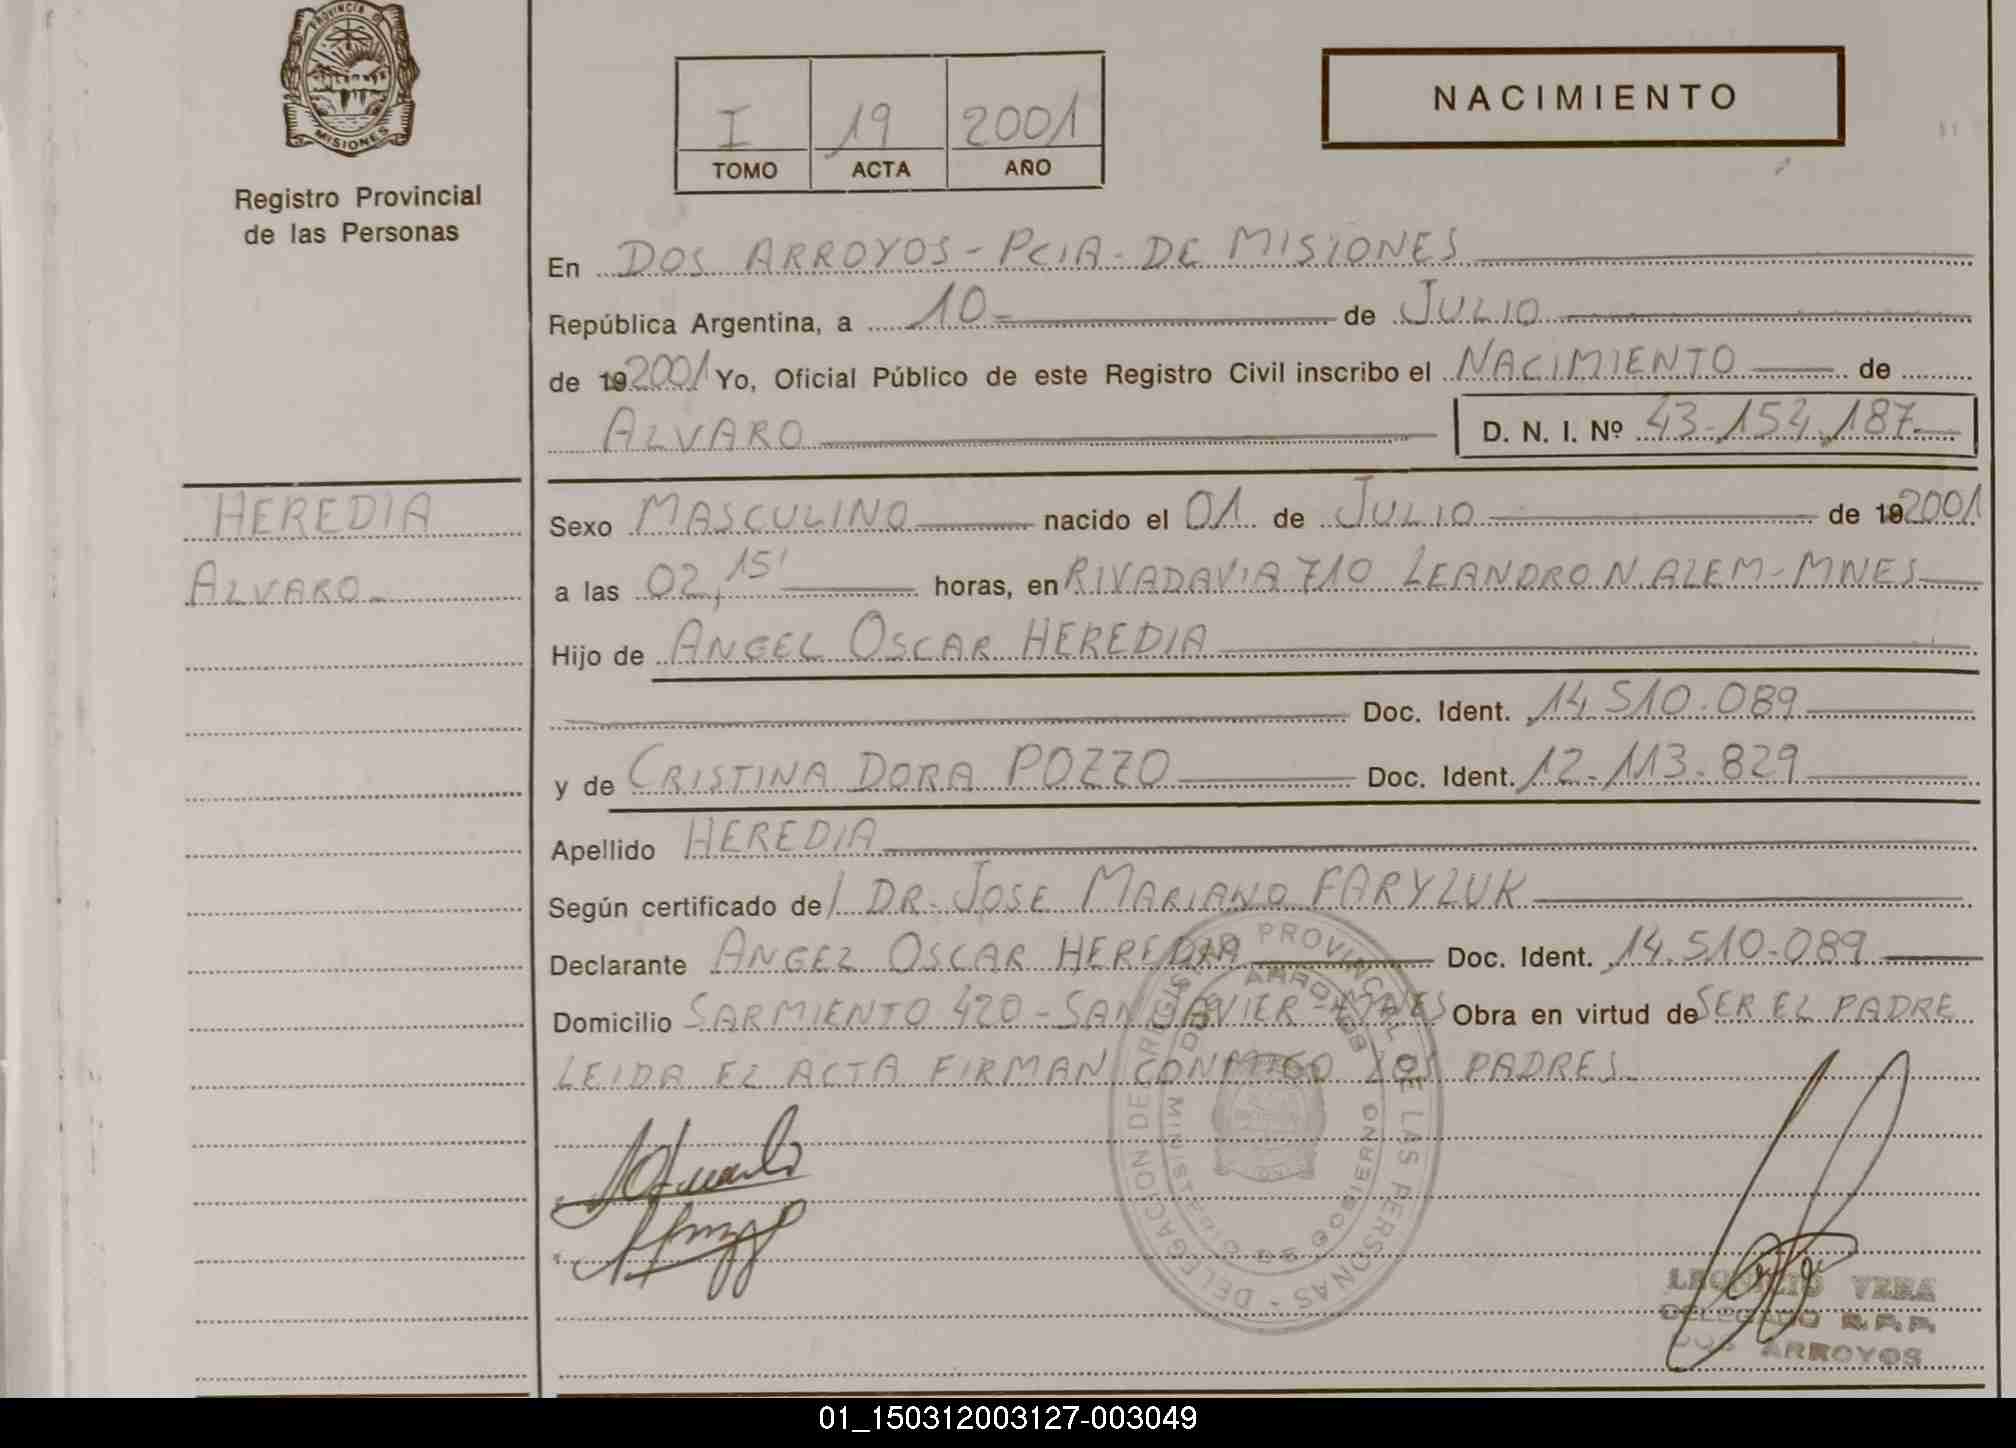 PROVINCIA D
MISIONES
Registro Provincial
de las Personas
I 19 2001
TOMO ACTA AÑO
NACIMIENTO
En DOS ARROYOS - PCIA - DE MISIONES
República Argentina, a 10 de JULIO
de 19 2001 Yo, Oficial Público de este Registro Civil inscribo el NACIMIENTO de
ALVARO D. N. I. Nº 43-154.187
HEREDIA
ALVARO
Sexo MASCULINO nacido el 01 de JULIO de 19 2001
a las 02,15' horas, en RIVADAVIA 710 LEANDRO N ALEM - MNES
Hijo de ANGEL OSCAR HEREDIA
Doc. Ident. 14.510.089
y de CRISTINA DORA POZZO Doc. Ident. 12.113.829
Apellido HEREDIA
Según certificado de/ DR. JOSE MARIANO FARYLUK
Declarante ANGEL OSCAR HEREDIA Doc. Ident. 14.510.089
Domicilio SARMIENTO 420 - SAN JAVIER - MNES Obra en virtud de SER EL PADRE
LEIDA EL ACTA FIRMAN CONMIGO LOS PADRES
REGISTRO PROVINCIAL DE LAS PERSONAS - DELEGACION DE
DOS ARROYOS
MINISTERIO DE GOBIERNO
LEONCIO VERA
DELEGADO R.P.P.
DOS ARROYOS
01_150312003127-003049